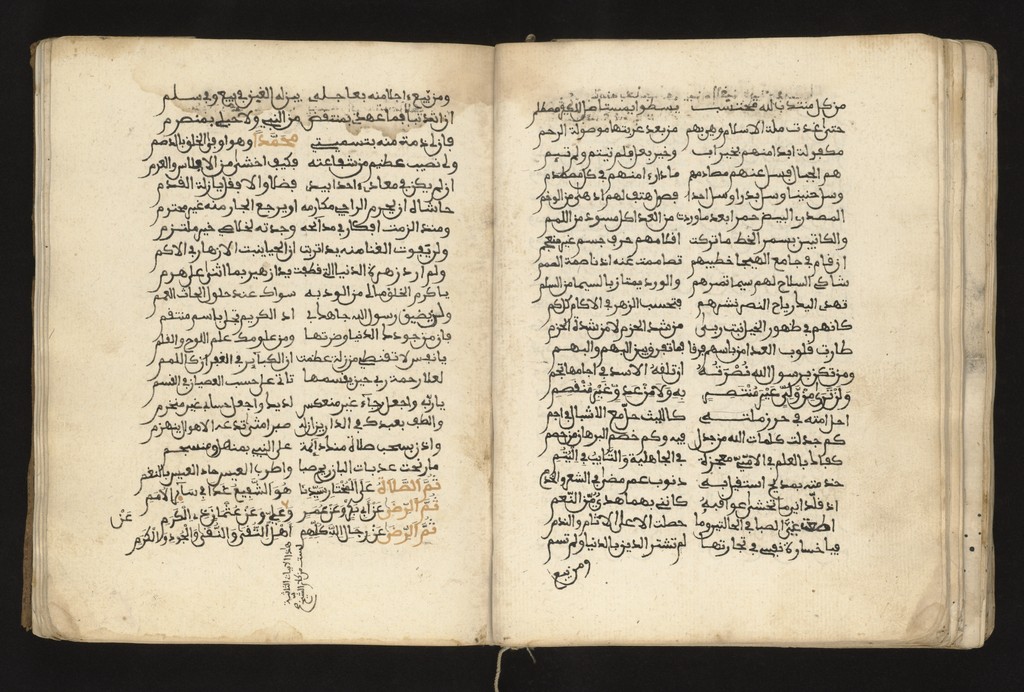 من كل منتدب لله محتسب يسطوا بمستاصل للكفر مصطلم
حتى غدت ملة الاسلام وهي بهم من بعد غربتها موصولة الرحم
مكفولة ابدا منهم بخير اب وخير بعل فلم تيتم ولم تيم
هم الجبال فسل عنهم مصادمهم ماذا رءا منهم في كل مصطدم
وسل حنينا وسل بدرا وسل احدا فصل حتف لهم ادهى من الوخم
المصدرى البيض حمرا بعد ما وردت من العدا كل مسود من اللمم
والكاتبين بسمر الخط ما تركت اقلامهم حرف جسم غير منعجم
ان قام في جامع الهيجا خطيبهم تصاممت عنه اذنا صمة الصمم
شاكي السلاح لهم سيما تميزهم والورد يمتاز بالسيما من السلم
تهدى اليك رياح النصر نشرهم فتحسب الزهر في الاكمام كل كم
كانهم في ظهور الخيل نبت ربى من شدة الحزم لا من شدة الحزم
طارت قلوب العدا من باسهم فرقا فما تفرق بين البهم والبهم
ومن تكن برسول الله نصرته ان تلقه الاسد في اجامها تجم
ولن ترى من ولي غير منتصر به ولا من عدو غير منقصم
احل امته في حرز ملته كالليث حل مع الاشبال في اجم
كم جدلت كلمات الله من جدل فيه وكم خصم البرهان من خصم
كفاك بالعلم في الامي معجزة في الجاهلية والتاديب في اليتم
خدمته بمديح استقيل به ذنوب عمر مضى في الشعر والخدم
اذ قلداني ما تخشى عواقبه كانني بهما هدي من النعم
اطعت غي الصبا في الحالتين وما حصلت الا على الاثام والندم
فيا خسارة نفسي في تجارتها لم تشتر الدين بالدنيا ولم تسم
ومن يبع
ومن يبع ءاجلا منه بعاجله يبن له الغبن في بيع وفي سلم
ان ات ذنبا فما عهدي بمنتقض من النبي ولا حبلي بمنصرم
فان لي ذمة منه بتسميتي محمدا وهو اوفى الخلق بالذمم
ولي نصيب عظيم من شفاعته فكيف اخشى من الافلاس والعرم
ان لم يكن في معادي ءاخذا بيدي فضلا والا فقل يا زلة القدم
حاشاه ان يحرم الراجي مكارمه او يرجع الجار منه غير محترم
ومنذ الزمت افكاري مدائحه وجدته لخلاصي خير ملتزم
ولن يفوت الغنا منه يدا تربت ان الحيا ينبت الازهار في الاكم
ولم ارد زهرة الدنيا التي اقتطفت يدا زهير بما اثنى على هرم
يا اكرم الخلق ما لي من الوذ به سواك عند حلول الحادث العمم
ولن يضيق رسول الله جاهك بي اذا الكريم تجلى باسم منتقم
فان من جودك الدنيا وضرتها ومن علومك علم اللوح والقلم
يا نفس لا تقنطي من زلة عظمت ان الكباير في الغفران كاللمم
لعل رحمة ربي حين يقسمها تاتي على حسب العصيان في القسم
يا رب واجعل رجاءي غير منعكس لديك واجعل حسابي غير منخرم
والطف بعبدك في الدارين ان له صبرا متى تدعه الاهوال ينهزم
واذن لسحب صلاة منك دائمة على النبي بمنهل ومنسجم
ما رنحت عذبات البان ريح صبا واطرب العيس حادي العيس بالنغم
ثم الصلاة على المختار سيدنا هو الشفيع غدا في سائر الامم
ثم الرضى عن ابي بكر وعن عمر وعن علي وعن عثمان ذي الكرم
ثم الرضى عن رجال الله كلهم اهل التقى والنقى والجود والكرم
هذه الابيات الثلاثة
ليست من كلام الشيخ